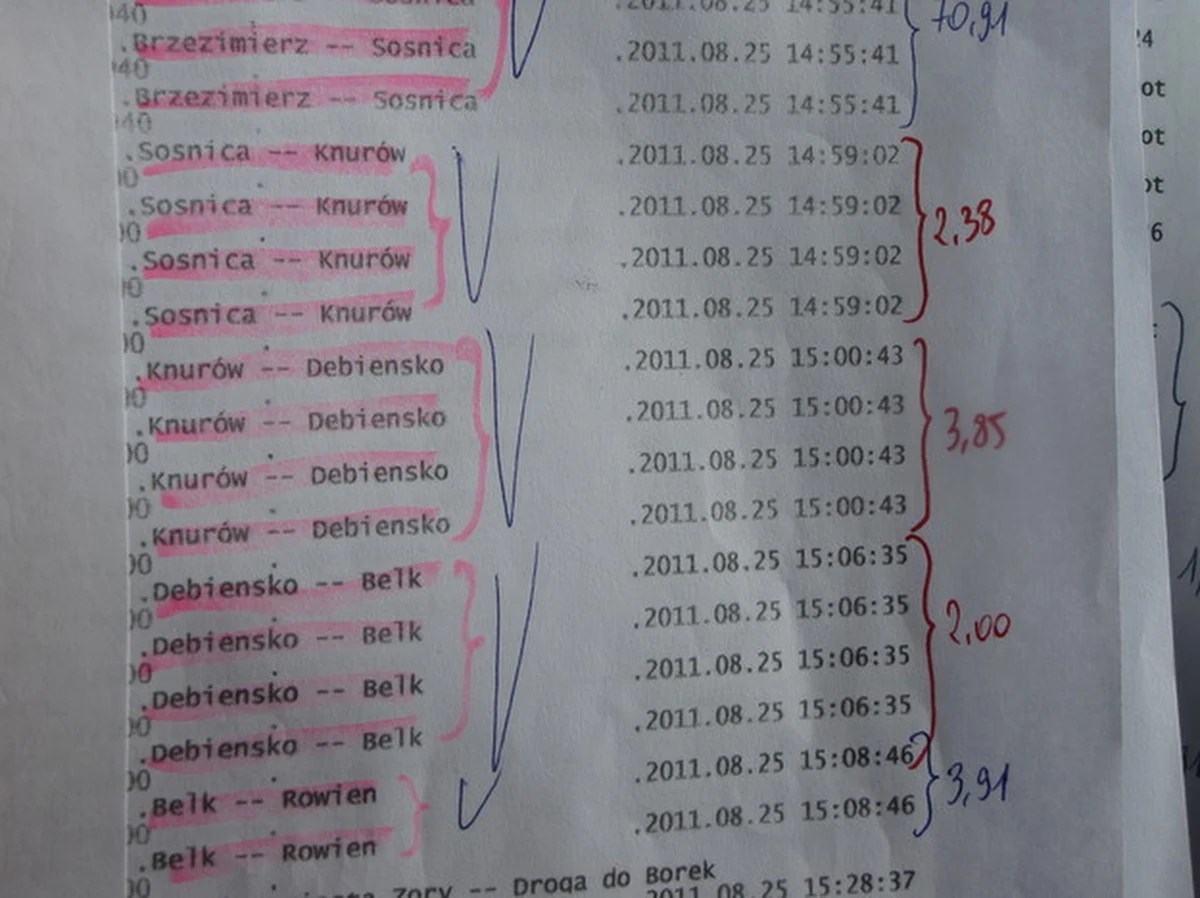 040 .2011.08.25 14:55:41
.Brzezimierz -- Sosnica .2011.08.25 14:55:41 70,91
040
.Brzezimierz -- Sosnica .2011.08.25 14:55:41
040
.Sosnica -- Knurów .2011.08.25 14:59:02
00
.Sosnica -- Knurów .2011.08.25 14:59:02 2,38
00
.Sosnica -- Knurów .2011.08.25 14:59:02
00
.Sosnica -- Knurów .2011.08.25 14:59:02
00
.Knurów -- Debiensko .2011.08.25 15:00:43
00
.Knurów -- Debiensko .2011.08.25 15:00:43 3,85
00
.Knurów -- Debiensko .2011.08.25 15:00:43
00
.Knurów -- Debiensko .2011.08.25 15:00:43
00
.Debiensko -- Bełk .2011.08.25 15:06:35
00
.Debiensko -- Bełk .2011.08.25 15:06:35 2,00
00
.Debiensko -- Bełk .2011.08.25 15:06:35
00
.Debiensko -- Bełk .2011.08.25 15:06:35
00
.Bełk -- Rowien .2011.08.25 15:08:46 3,91
00
.Bełk -- Rowien .2011.08.25 15:08:46
00
Zory -- Droga do Borek
2011.08.25 15:28:37
24
ot
ot
ot
6